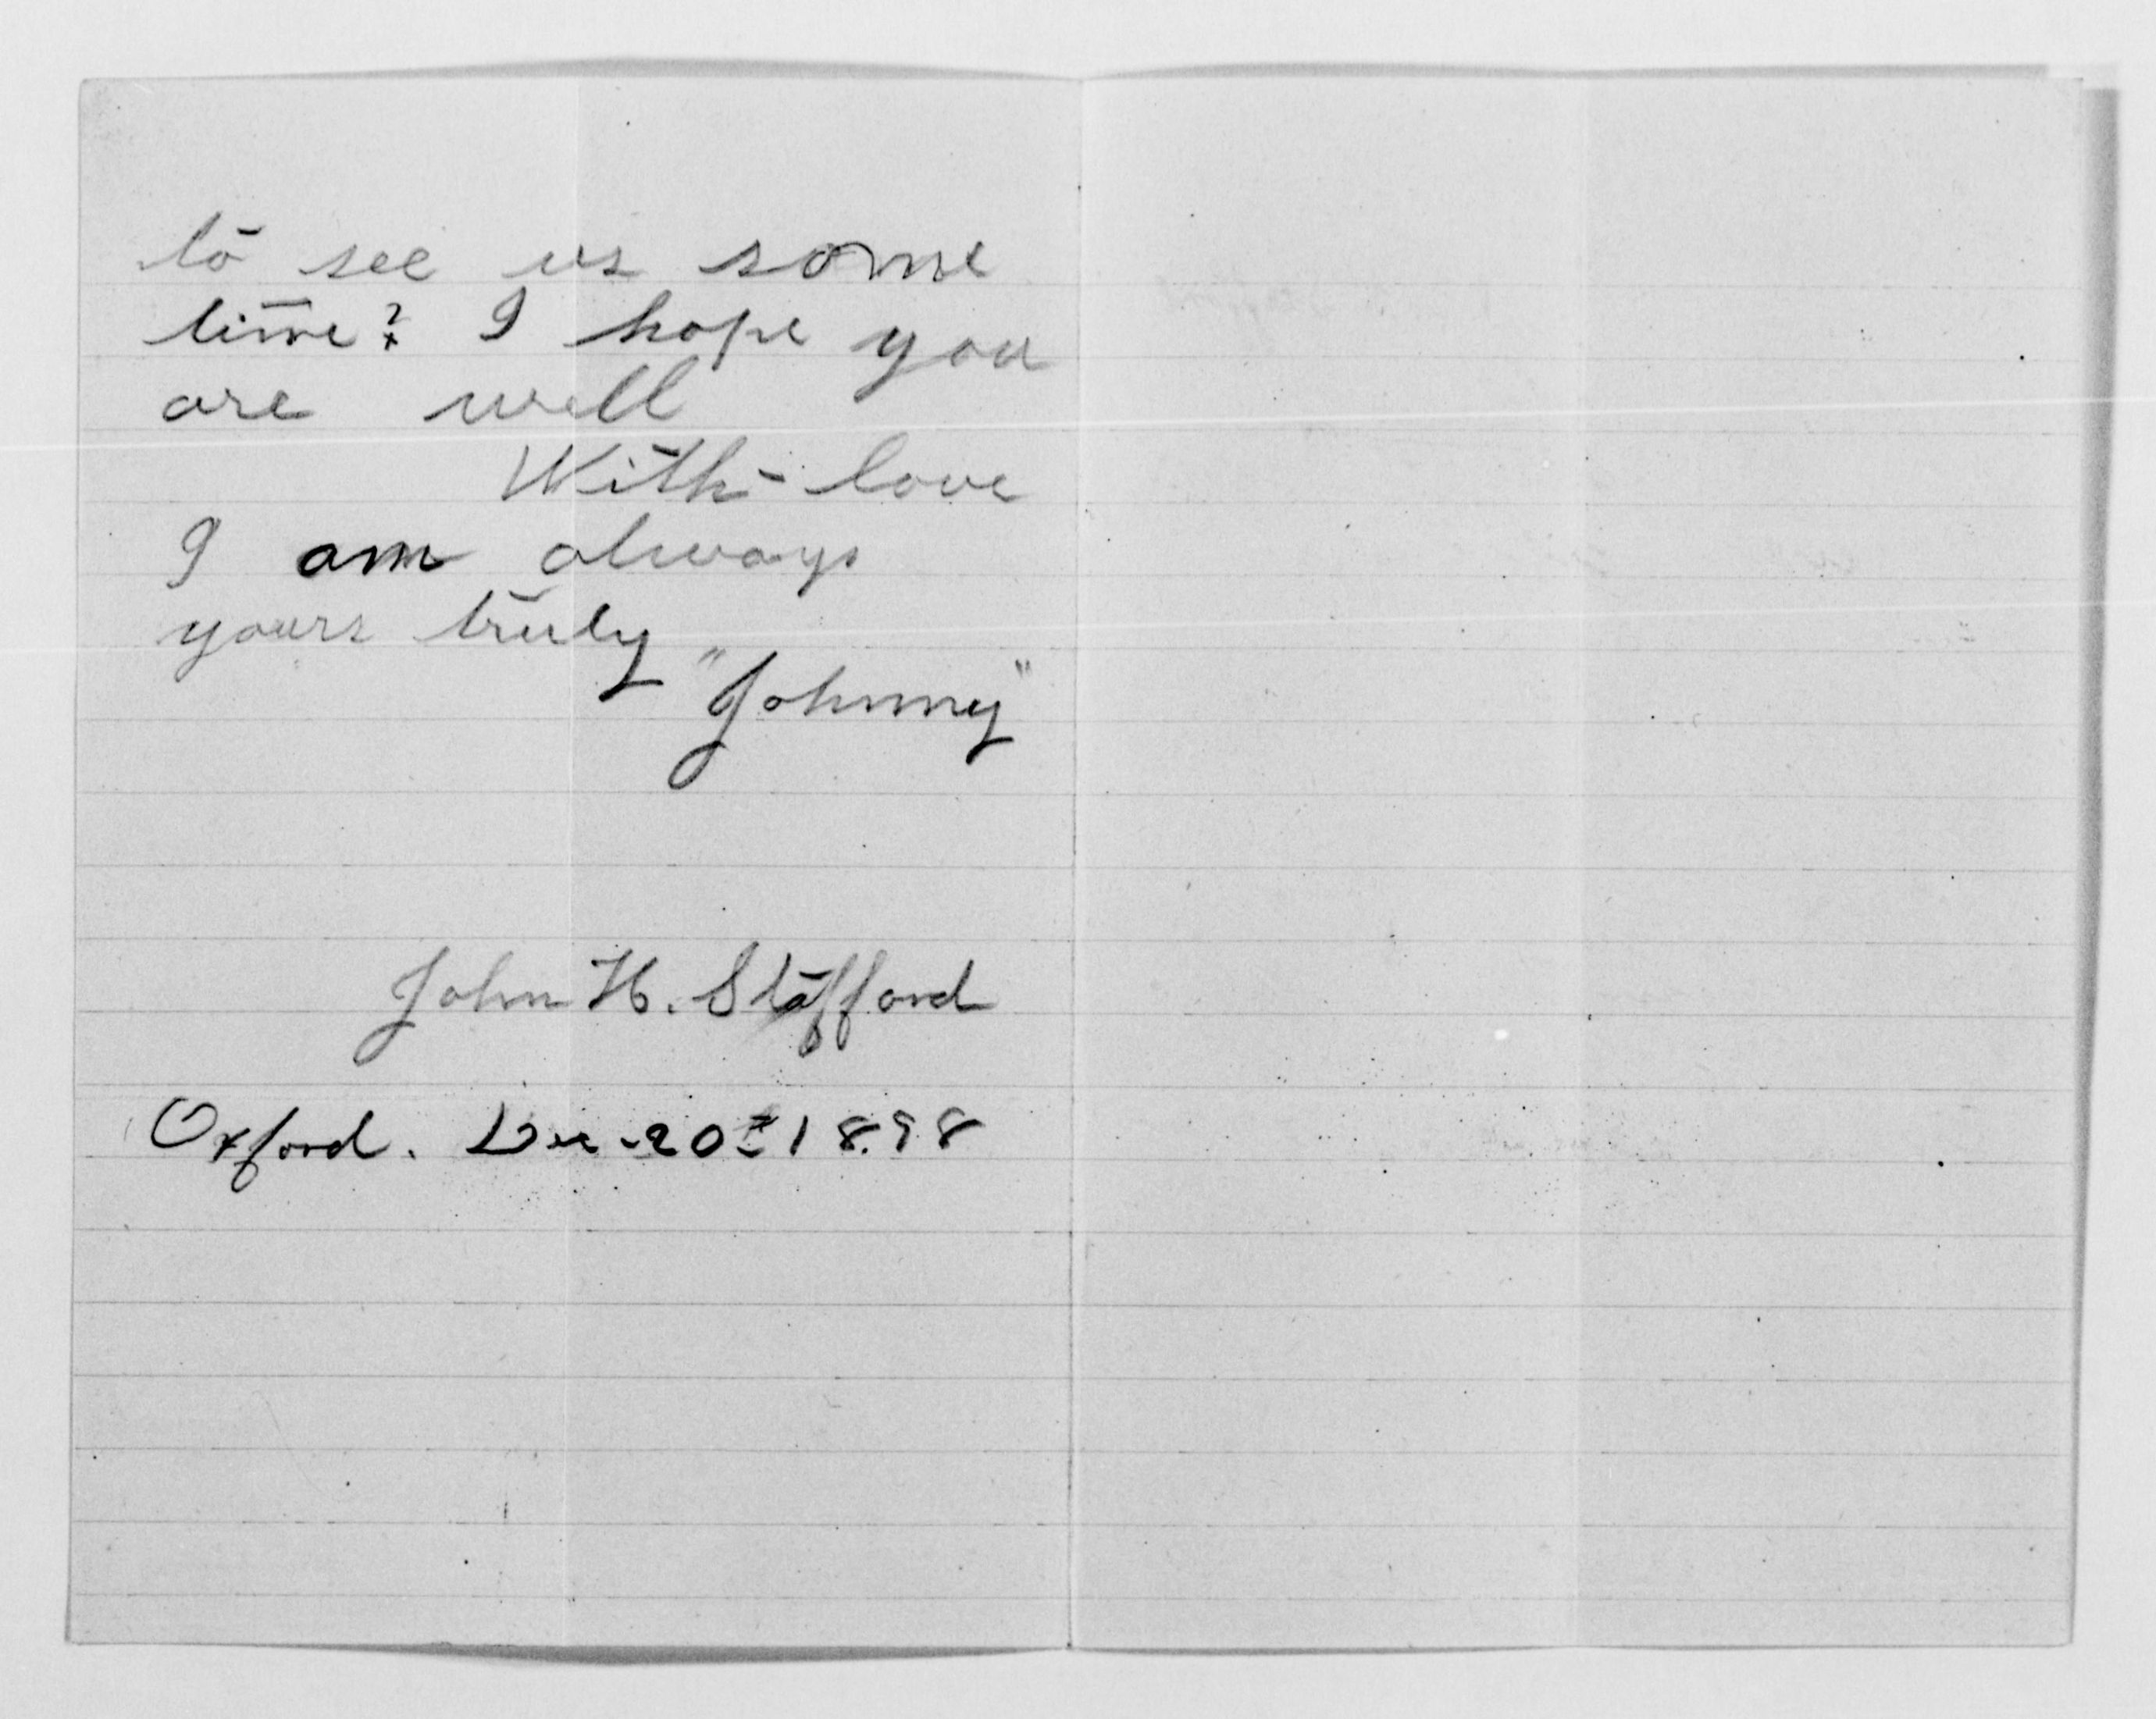 to see us some
time? I hope you
are well
With love
I am always
yours truly
"Johnny"
John H. Stafford
Oxford. Dec. 20th 1898